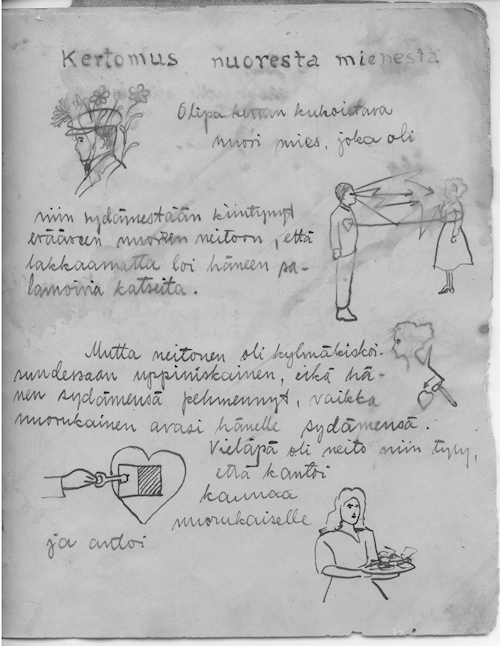 Kertomus nuoresta miehestä
Olipa kerran kukoistava
nuori mies, joka oli
niin sydämestään kiintynyt
erääseen nuoreen neitoon, että
lakkaamatta loi häneen sa-
lamoivia katseita.
Mutta neitonen oli kylmäkiskoi-
suudessaan uppiniskainen, eikä hä-
nen sydämensä pehmennyt, vaikka
nuorukainen avasi hänelle sydämensä.
Vieläpä oli neito niin tyly,
että kantoi
kaunaa
nuorukaiselle
ja antoi